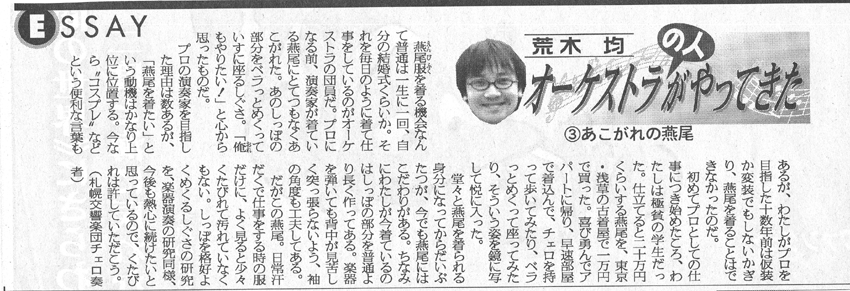 ESSAY
荒木 均
オーケストラの人がやってきた
③あこがれの燕尾
燕尾服を着る機会なん
て普通は一生に一回、自
分の結婚式くらいか。そ
れを毎日のように着て仕
事をしているのがオーケ
ストラの団員だ。プロに
なる前、演奏家が着てい
る燕尾にとてつもなくあ
こがれた。あのしっぽの
部分をペラっとめくって
いすに座るしぐさ。「俺
もやりたい！」と心から
思ったものだ。
プロの演奏家を目指し
た理由は数あるが、
「燕尾を着たい」と
いう動機はかなり上
位に位置する。今な
ら〝コスプレ〟など
という便利な言葉も
あるが、わたしがプロを
目指した十数年前は仮装
か変装でもしないかぎ
り、燕尾を着ることはで
きなかったのだ。
初めてプロとしての仕
事につき始めたころ、わ
たしは極貧の学生だっ
た。仕立てると二十万円
くらいする燕尾を、東京
・浅草の古着屋で一万円
で買った。喜び勇んでア
パートに帰り、早速部屋
で着込んで、チェロを持
って歩いてみたり、ペラ
っとめくって座ってみた
り、そういう姿を鏡に写
して悦に入った。
堂々と燕尾を着られる
身分になってからだいぶ
たつが、今でも燕尾には
こだわりがある。ちなみ
にわたしが今着ているの
はしっぽの部分を普通よ
り長く作ってある。楽器
を弾いても背中が見苦し
く突っ張らないよう、袖
の角度も工夫してある。
だがこの燕尾。日常汗
だくで仕事をする時の服
だけに、よく見ると少々
くたびれて汚れていなく
もない。しっぽを格好よ
くめくるしぐさの研究
を、楽器演奏の研究同様、
今後も熱心に続けたいと
思っているので、くたび
れは許していただこう。
（札幌交響楽団チェロ奏
者）